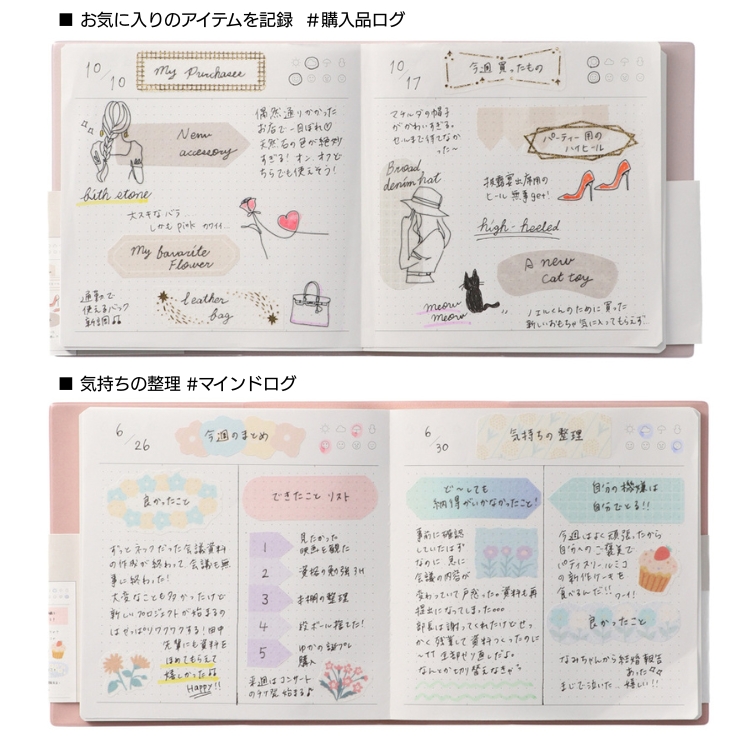 ■ お気に入りのアイテムを記録 #購入品ログ
10/10
My Purchases
New
accessory
偶然通りかかった
お店で一目ぼれ♡
天然石の色が絶妙
すぎる! オン オフど
ちらでも使えそう!
bith stone
大スキなバラ…
しかも pink カワイイ…
My favarite
Flower
通勤で
使えるバック
新調♫
leather
bag
10/17
今週 買ったもの
マチルダの帽子
がかわいすぎる。
セルまで待てなか
った〜
Broad
denim hat
パーティー用の
ハイヒール
披露宴出席用の
ヒール 無事get!
high-heeled
A new
Cat toy
meow
meow
ノエルくんのために買った
新しいおもちゃ 気に入ってもらえず…
■ 気持ちの整理 #マインドログ
6/26
今週のまとめ
良かったこと
ずっとネックだった会議資料
の作成が終わって、会議も無
事に終わった!
大変なことも多かったけど
新しいプロジェクトが始まるの
はぜっぱりワクワクする! 田中
先輩にも資料を
ほめてもらえて
嬉しかった♫
Happy!!
できたこと リスト
1 見たかった
映画を観た
2 資格の勉強 3H
3 本棚の整理
4 段ボール捨てた!
5 ゆかの誕プレ
購入
来週はコンサート
のチケ発 始まる♪
6/30
気持ちの 整理
ど〜しても
納得がいかなかったこと!
事前に確認
していたはず
なのに 急に
会議の内容が
変わっていて戸惑った。資料も再
提出になってしまった。。。
部長は謝ってくれたけどせっ
かく残業して資料つくったのに
〜!! 全部やり直しだよ。
なんとか切り替えなきゃ〜
自分の機嫌は
自分でとる!!
今週はよく頑張ったから
自分へのご褒美で
パティスリールミコ
の新作ケーキを
食べるんだ!!
ワーイ!
良かったこと
なみちゃんから結婚報告
あった
まじで泣いた… 嬉しい!!